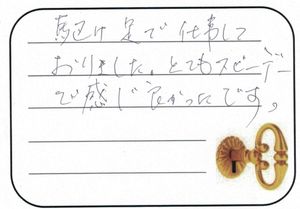 駆け足で仕事して
おりました。とてもスピーデー
で感じ良かったです。